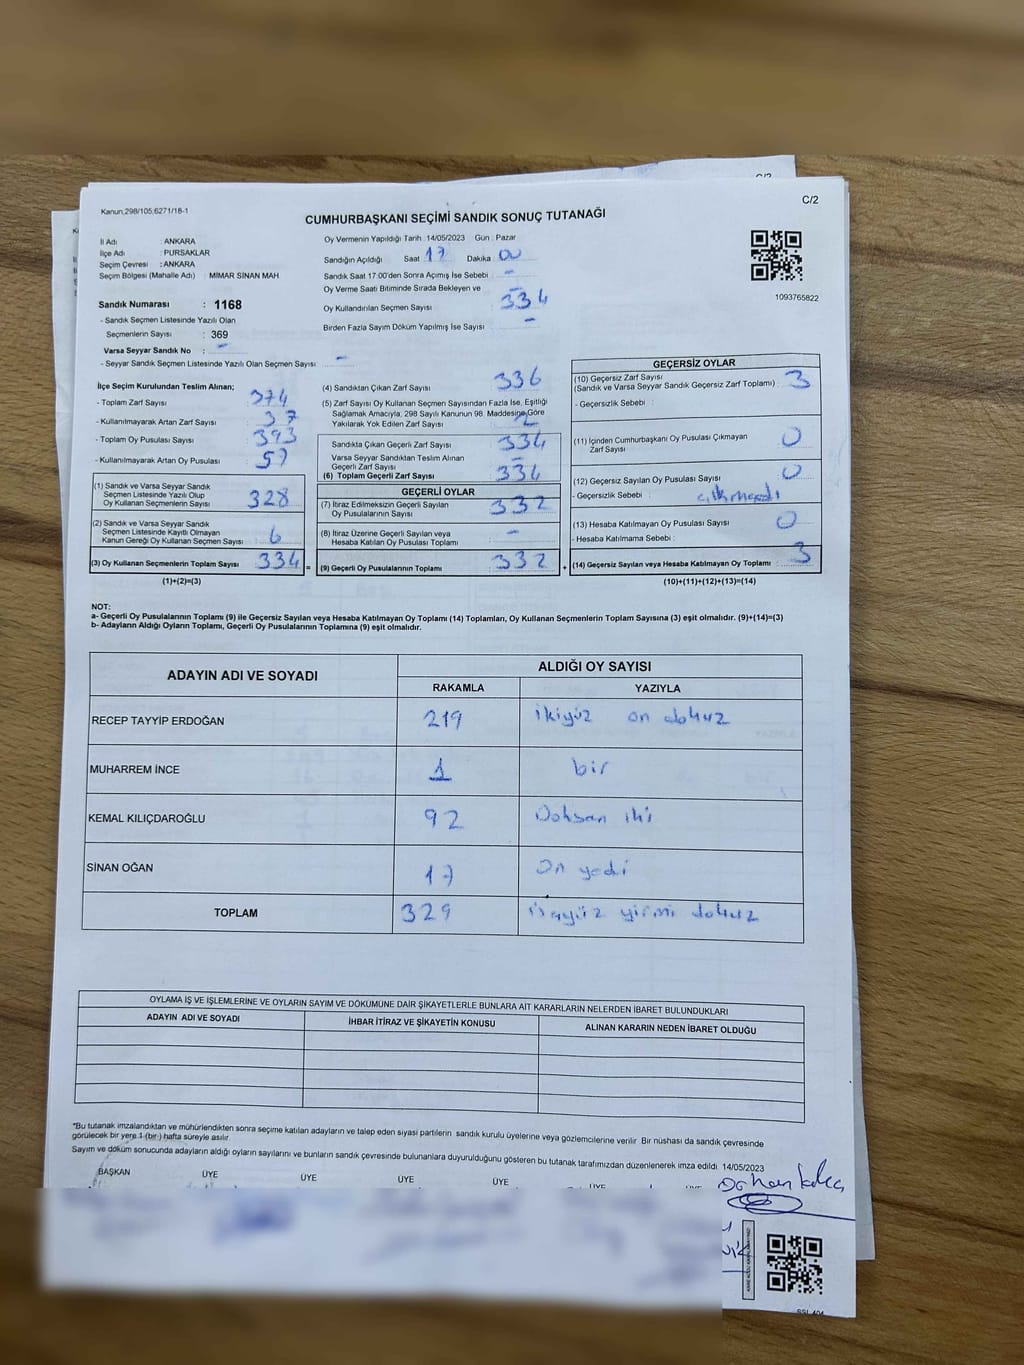 C/2
Kanun,298/105,6271/18-1
C/2
CUMHURBAŞKANI SEÇİMİ SANDIK SONUÇ TUTANAĞI
İl Adı : ANKARA
İlçe Adı : PURSAKLAR
Seçim Çevresi : ANKARA
Seçim Bölgesi (Mahalle Adı) : MİMAR SİNAN MAH
Sandık Numarası : 1168
- Sandık Seçmen Listesinde Yazılı Olan
Seçmenlerin Sayısı : 369
Varsa Seyyar Sandık No : -
- Seyyar Sandık Seçmen Listesinde Yazılı Olan Seçmen Sayısı : -
Oy Vermenin Yapıldığı Tarih : 14/05/2023 Gün : Pazar
Sandığın Açıldığı Saat 17 Dakika 00
Sandık Saat 17:00'den Sonra Açımış İse Sebebi : -
Oy Verme Saati Bitiminde Sırada Bekleyen ve
Oy Kullandırılan Seçmen Sayısı 334
Birden Fazla Sayım Döküm Yapılmış İse Sayısı : -
1093765822
İlçe Seçim Kurulundan Teslim Alınan;
- Toplam Zarf Sayısı 374
- Kullanılmayarak Artan Zarf Sayısı 37
- Toplam Oy Pusulası Sayısı 393
- Kullanılmayarak Artan Oy Pusulası 57
(1) Sandık ve Varsa Seyyar Sandık
Seçmen Listesinde Yazılı Olup
Oy Kullanan Seçmenlerin Sayısı 328
(2) Sandık ve Varsa Seyyar Sandık
Seçmen Listesinde Kayıtlı Olmayan
Kanun Gereği Oy Kullanan Seçmen Sayısı : 6
(3) Oy Kullanan Seçmenlerin Toplam Sayısı 334 =
(1)+(2)=(3)
(4) Sandıktan Çıkan Zarf Sayısı 336
(5) Zarf Sayısı Oy Kullanan Seçmen Sayısından Fazla İse, Eşitliği
Sağlamak Amacıyla, 298 Sayılı Kanunun 98. Maddesine Göre
Yakılarak Yok Edilen Zarf Sayısı 2
Sandıkta Çıkan Geçerli Zarf Sayısı 334
Varsa Seyyar Sandıktan Teslim Alınan
Geçerli Zarf Sayısı -
(6) Toplam Geçerli Zarf Sayısı 334
GEÇERLİ OYLAR
(7) İtiraz Edilmeksizin Geçerli Sayılan
Oy Pusulalarının Sayısı 332
(8) İtiraz Üzerine Geçerli Sayılan veya
Hesaba Katılan Oy Pusulası Toplamı -
(9) Geçerli Oy Pusulalarının Toplamı 332 +
GEÇERSİZ OYLAR
(10) Geçersiz Zarf Sayısı
(Sandık ve Varsa Seyyar Sandık Geçersiz Zarf Toplamı) : 3
- Geçersizlik Sebebi :
(11) İçinden Cumhurbaşkanı Oy Pusulası Çıkmayan
Zarf Sayısı 0
(12) Geçersiz Sayılan Oy Pusulası Sayısı : 0
- Geçersizlik Sebebi : çıkmadı
(13) Hesaba Katılmayan Oy Pusulası Sayısı : 0
- Hesaba Katılmama Sebebi :
(14) Geçersiz Sayılan veya Hesaba Katılmayan Oy Toplamı : 3
(10)+(11)+(12)+(13)=(14)
NOT:
a- Geçerli Oy Pusulalarının Toplamı (9) ile Geçersiz Sayılan veya Hesaba Katılmayan Oy Toplamı (14) Toplamları, Oy Kullanan Seçmenlerin Toplam Sayısına (3) eşit olmalıdır. (9)+(14)=(3)
b- Adayların Aldığı Oyların Toplamı, Geçerli Oy Pusulalarının Toplamına (9) eşit olmalıdır.
ADAYIN ADI VE SOYADI ALDIĞI OY SAYISI
RAKAMLA YAZIYLA
RECEP TAYYİP ERDOĞAN 219 ikiyüz on dokuz
MUHARREM İNCE 1 bir
KEMAL KILIÇDAROĞLU 92 Doksan iki
SİNAN OĞAN 17 On yedi
TOPLAM 329 üçyüz yirmi dokuz
OYLAMA İŞ VE İŞLEMLERİNE VE OYLARIN SAYIM VE DÖKÜMÜNE DAİR ŞİKAYETLERLE BUNLARA AİT KARARLARIN NELERDEN İBARET BULUNDUKLARI
ADAYIN ADI VE SOYADI İHBAR İTİRAZ VE ŞİKAYETİN KONUSU ALINAN KARARIN NEDEN İBARET OLDUĞU
*Bu tutanak imzalandıktan ve mühürlendikten sonra seçime katılan adayların ve talep eden siyasi partilerin sandık kurulu üyelerine veya gözlemcilerine verilir. Bir nüshası da sandık çevresinde
görülecek bir yere 1 (bir ) hafta süreyle asılır.
Sayım ve döküm sonucunda adayların aldığı oyların sayılarını ve bunların sandık çevresinde bulunanlara duyurulduğunu gösteren bu tutanak tarafımızdan düzenlenerek imza edildi. 14/05/2023
BAŞKAN ÜYE ÜYE ÜYE ÜYE ÜYE